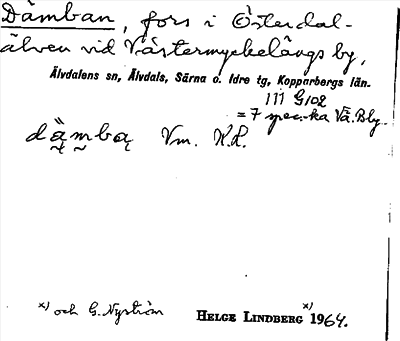 Dämban, fors i Österdal-
älven vid Västermyckelängs by,
Älvdalens sn, Älvdals, Särna o. Idre tg, Kopparbergs län.
111 G102
= 7 spec.ka Vä. Bly.
dä̀mbą Vm. K.L.
x) och G. Nyström
HELGE LINDBERG x) 1964.